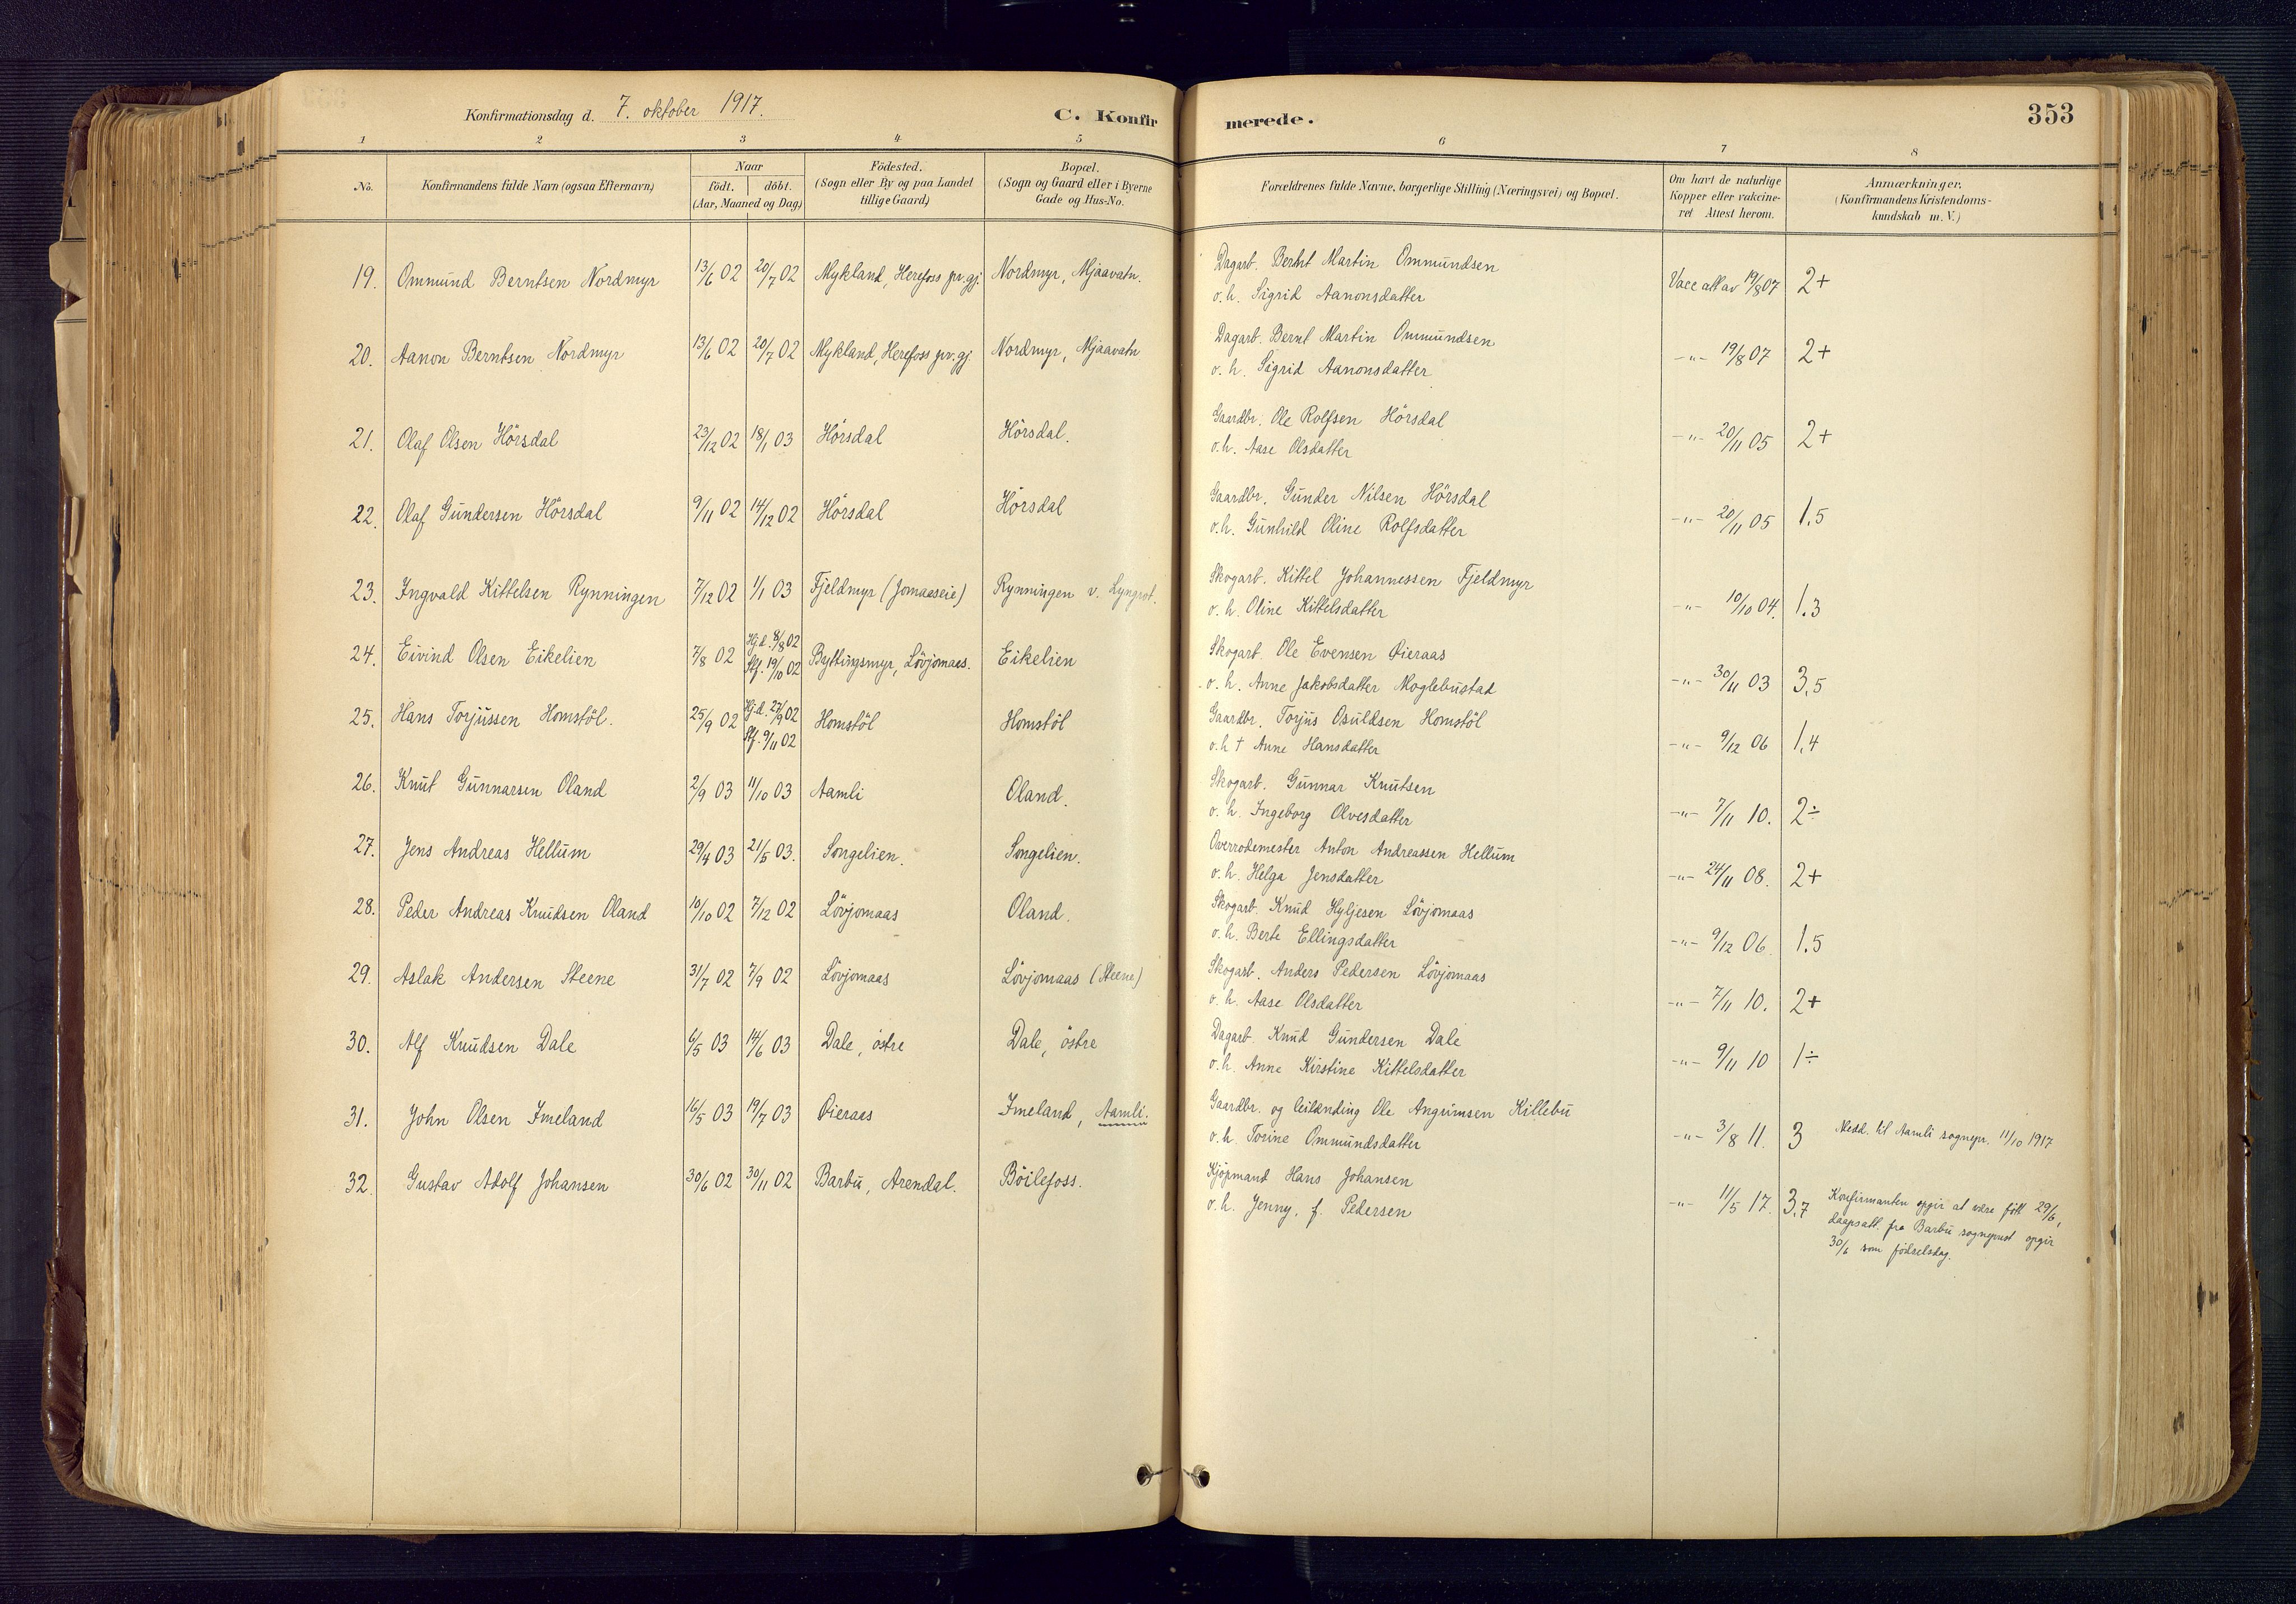 Konfirmationsdag d. 7. oktober 1917.
C. Konfirmerede.
353
1 2 3 4 5 6 7 8
No.
Konfirmandens fulde Navn (ogsaa Efternavn)
Naar
födt. döbt.
(Aar, Maaned og Dag)
Födested.
(Sogn eller By og paa Landet
tillige Gaard)
Bopæl.
(Sogn og Gaard eller i Byerne
Gade og Hus-No.
Forældrenes fulde Navne, borgerlige Stilling (Næringsvei) og Bopæl.
Om havt de naturlige
Kopper eller vakcine-
ret Attest herom.
Anmærkninger.
(Konfirmandens Kristendoms-
kundskab m. V.)
19. Ommund Berntsen Nordmyr 13/6 02 20/7 02 Mykland, Herefoss pr.gj. Nordmyr, Mjaavatn. Dagarb. Bernt Martin Ommundsen
o. h. Sigrid Aanonsdatter Vacc att av 19/8 07 2+
20. Aanon Berntsen Nordmyr 13/6 02 20/7 02 Mykland, Herefoss pr.gj. Nordmyr, Mjaavatn Dagarb. Bernt Martin Ommundsen
o. h. Sigrid Aanonsdatter -"- 19/8 07 2+
21. Olaf Olsen Hörsdal 23/12 02 18/1 03 Hörsdal Hörsdal. Gaardbr. Ole Rolfsen Hörsdal
o. h. Aase Olsdatter -"- 20/11 05 2+
22. Olaf Gundersen Hörsdal 9/11 02 14/12 02 Hörsdal Hörsdal Gaardbr. Gunder Nilsen Hörsdal
o. h. Gunhild Oline Rolfsdatter -"- 20/11 05 1.5
23. Ingvald Kittelsen Rynningen 7/12 02 1/1 03 Fjeldmyr (Jomaaseie) Rynningen v. Lyngrot. Skogarb. Kittel Johannessen Fjeldmyr
o. h. Oline Kittelsdatter -"- 10/10 04. 1.3
24. Eivind Olsen Eikelien 7/8 02 Hj.d. 8/8 02 Stf. 19/10 02 Byttingsmyr, Lövjomaas. Eikelien Skogarb. Ole Evensen Øieraas
o. h. Anne Jakobsdatter Moglebustad -"- 30/11 03 3.5
25. Hans Torjussen Homstöl. 25/9 02 Hj.d. 27/9 02 Stf. 9/11 02 Homstöl Homstöl Gaardbr. Torjus Osuldsen Homstöl
o. h † Anne Hansdatter -"- 9/12 06 1.4
26. Knut Gunnarsen Oland 2/9 03 11/10 03 Aamli Oland. Skogarb. Gunnar Knutsen
o. h. Ingeborg Olvesdatter -"- 7/11 10. 2÷
27. Jens Andreas Hellum 29/4 03 21/5 03. Songelien. Songelien. Overrodemester Anton Andreassen Hellum
o. h. Helga Jensdatter -"- 24/11 08. 2+
28. Peder Andreas Knudsen Oland 10/10 02 7/12 02 Lövjomaas Oland. Skogarb. Knud Hyljesen Lövjomaas
o. h. Berte Ellingsdatter -"- 9/12 06. 1.5
29. Aslak Andersen Steene 31/7 02 7/9 02 Lövjomaas Lövjomaas (Steene) Skogarb. Anders Pedersen Lövjomaas
o. h. Aase Olsdatter -"- 7/11 10. 2+
30. Alf Knudsen Dale 6/5 03 14/6 03 Dale, östre Dale, östre Dagarb. Knud Gundersen Dale
o. h. Anne Kirstine Kittelsdatter -"- 9/11 10 1÷
31. John Olsen Imeland 16/5 03 19/7 03 Øieraas Imeland, Aamli. Gaardbr. og leilænding Ole Angrimsen Killebu
o. h. Torine Ommundsdatter -"- 3/8 11. 3 Medd. til Aamli sognepr. 11/10 1917
32. Gustav Adolf Johansen 30/6 02 30/11 02 Barbu, Arendal. Böilefoss. Kjøpmand Hans Johansen
o. h. Jenny, f. Pedersen -"- 11/5 17. 3.7 Konfirmanten opgir at være født 29/6,
daapsatt. fra Barbu sogneprest opgir
30/6 som fødselsdag.